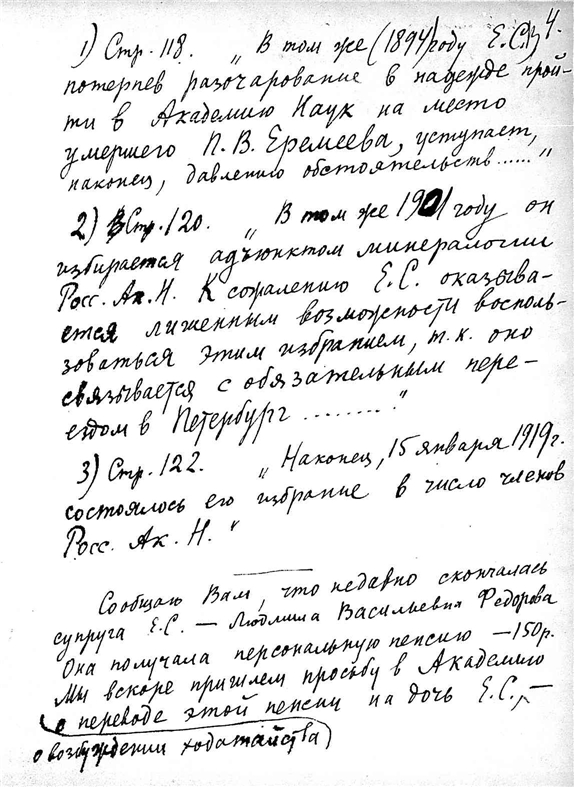 4.
1) Стр. 118. „В том же (1894) году Е.С.,
потерпев разочарование в надежде прой-
ти в Академию Наук на место
умершего П. В. Еремеева, уступает,
наконец, давлению обстоятельств......"
2) Стр. 120. „В том же 1901 году он
избирается адъюнктом минералогии
Росс. Ак. Н. К сожалению Е.С. оказыва-
ется лишенным возможности восполь-
зоваться этим избранием, т.к. оно
связывается с обязательным пере-
ездом в Петербург ........."
3) Стр. 122. „Наконец, 15 января 1919 г.
состоялось его избрание в число членов
Росс. Ак. Н."
Сообщаю Вам, что недавно скончалась
супруга Е.С. — Людмила Васильевна Федорова
Она получала персональную пенсию — 150 р.
Мы вскоре пришлем просьбу в Академию
о переводе этой пенсии на дочь Е.С., —
о возбуждении ходатайства)